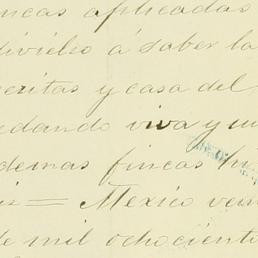 ncas aplicadas
divieso á saber la
y casa del
edando viva y
demas fincas hi
Mexico vein
de mil ochocient